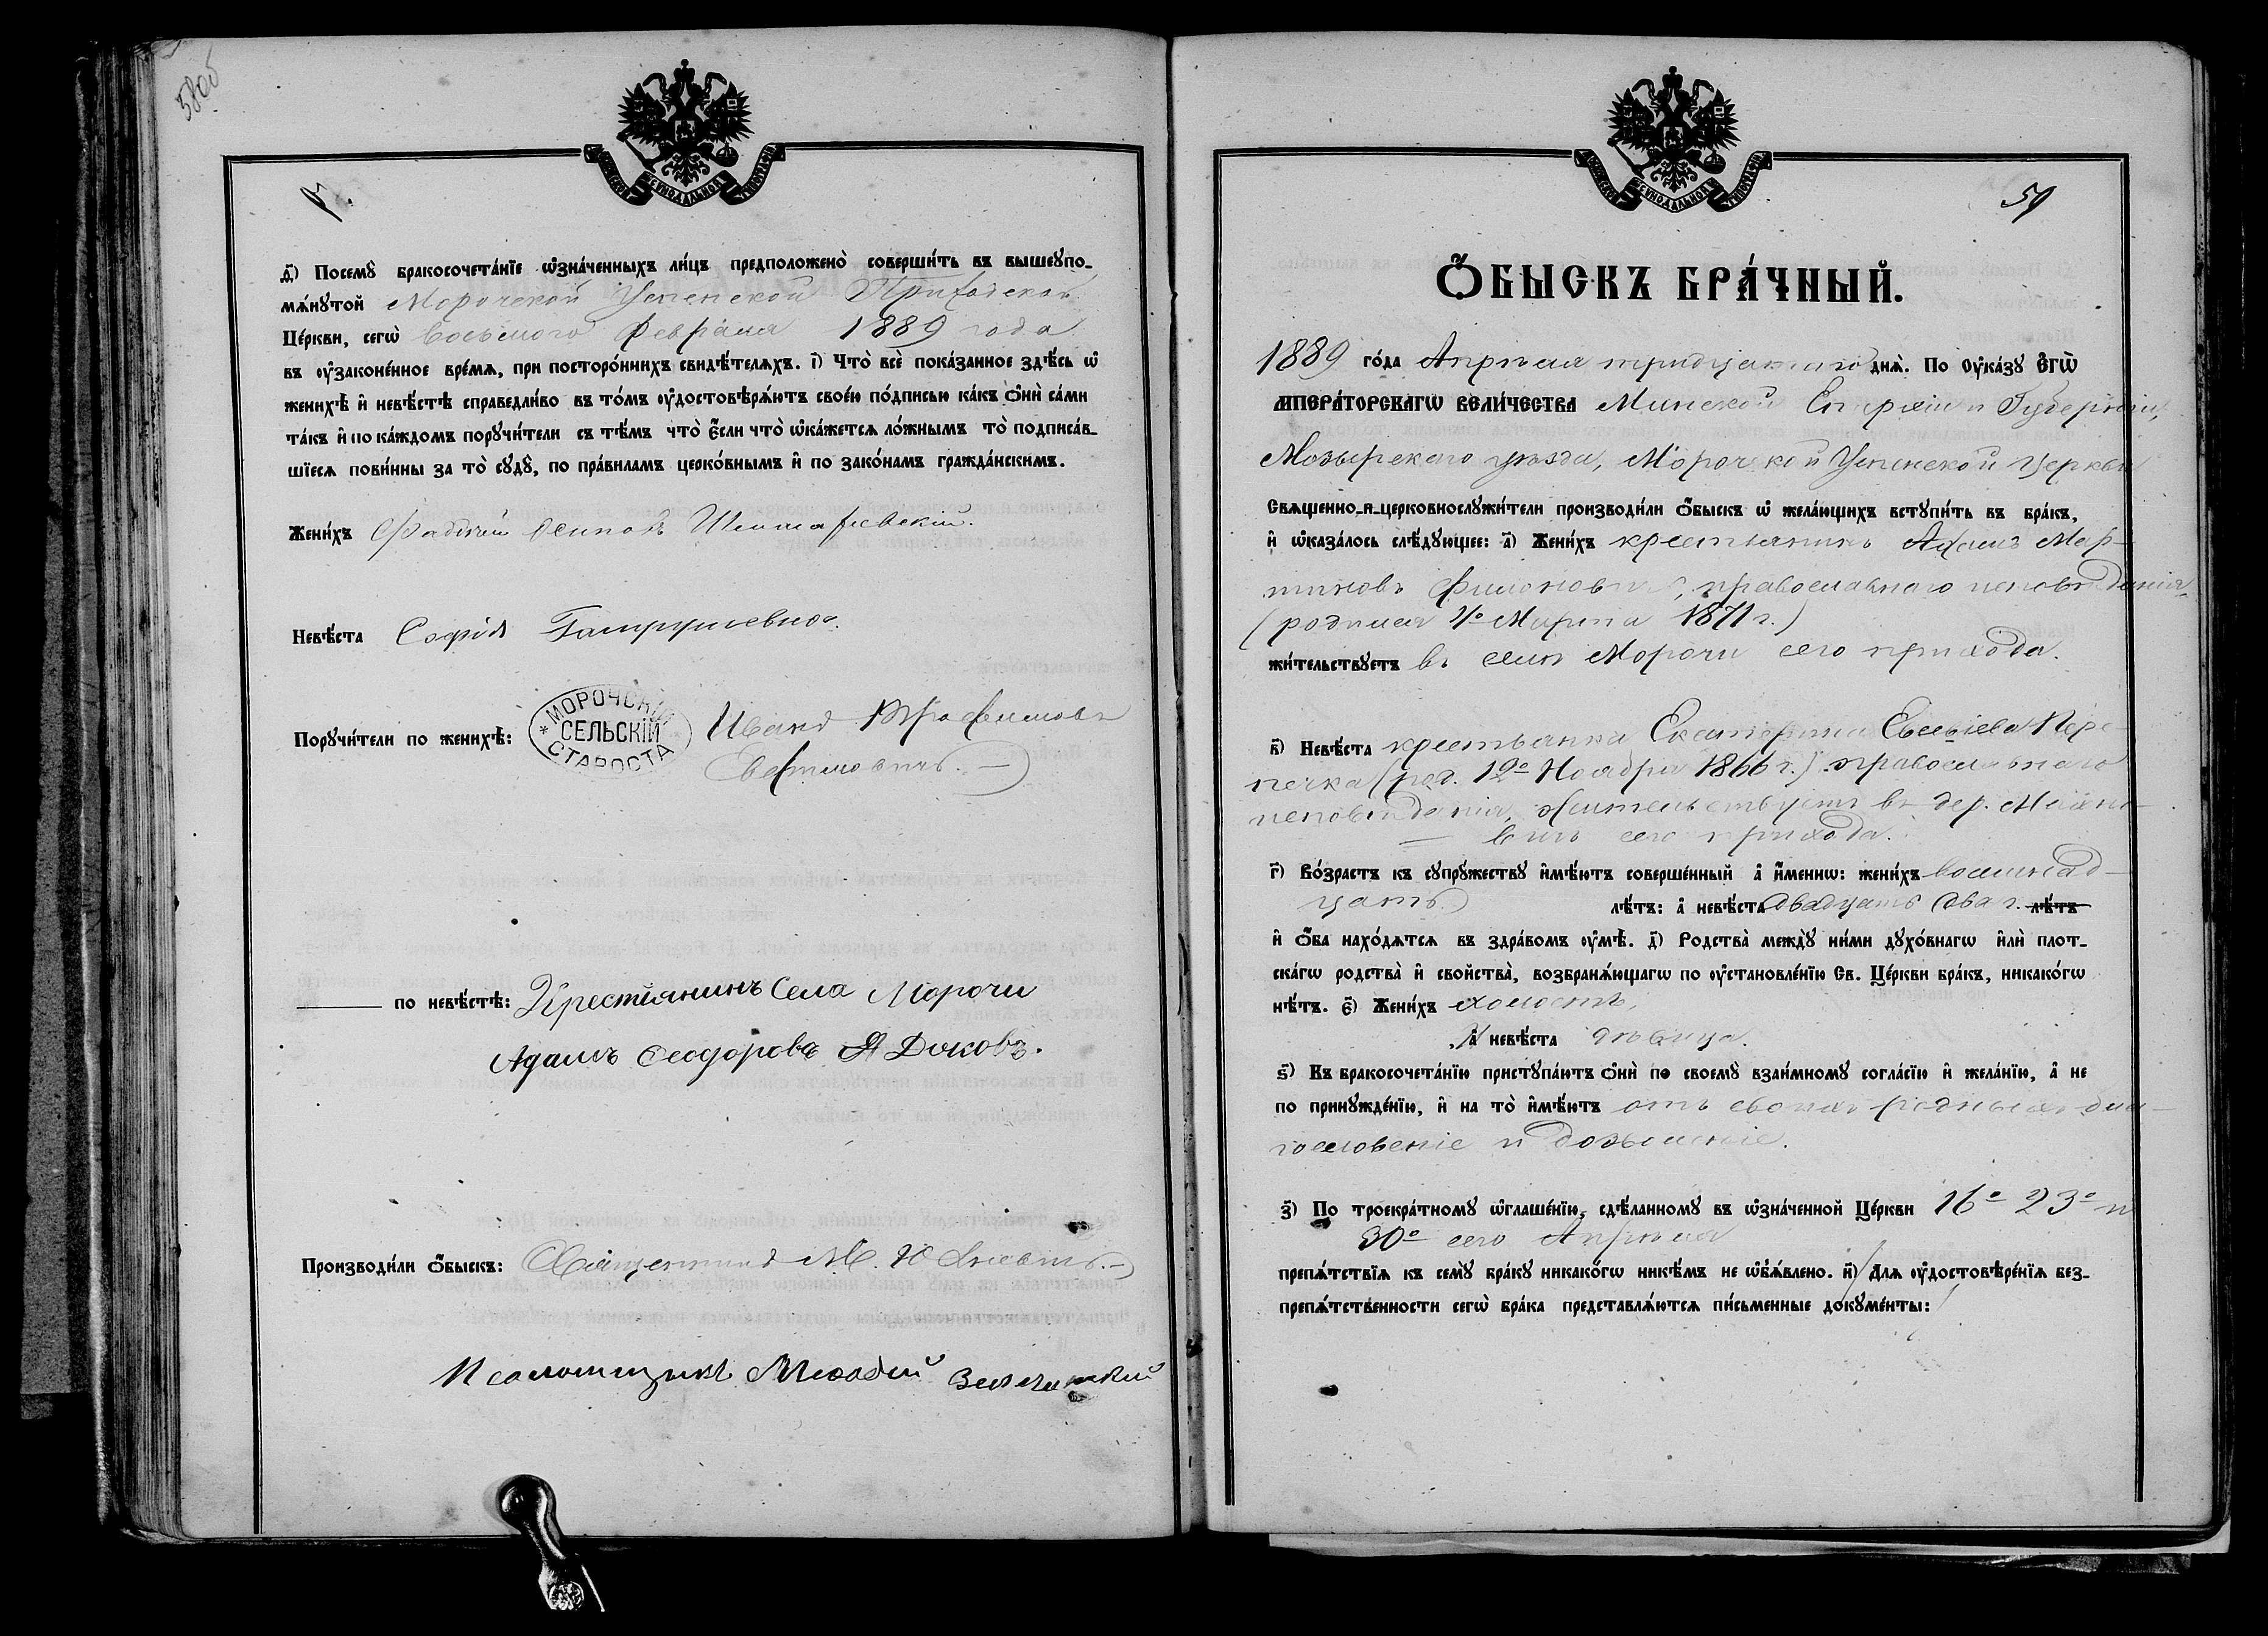 58об
д҃) Посемꙋ̀ бракосочета́нїе ѡ҆зна́ченныхъ ли́цъ предположено̀ соверши́ть въ вышеꙋпо-
мѧ́нꙋтой Морочской Успенской Приходской
Це́ркви, сегѡ̀ восьмого февраля 1889 года
въ оу҆законе́нное вре́мѧ, при посторо́ннихъ свидѣ́телѧхъ. і҃) Что̀ всѐ пока́занное здѣ́сь ѡ҆
женихѣ̀ и҆ невѣ́стѣ справедли́во въ то́мъ оу҆достовѣрѧ́ютъ свое́ю по́дписью ка́къ ѻ҆нѝ са́ми
та́къ и҆ по ка́ждомъ порꙋчи́тели съ тѣ́мъ что̀ є҆́сли что̀ ѡ҆ка́жетсѧ ло́жнымъ то̀ подписа́в-
шїесѧ пови́нны за то̀ сꙋдꙋ̀, по пра́виламъ церко́внымъ и҆ по зако́намъ гражда́нскимъ.
Жени́хъ Фаддей Осиповъ
Невѣ́ста Софія
Порꙋчи́тели по женихѣ̀: МОРОЧСКІЙ СЕЛЬСКІЙ СТАРОСТА Иванъ Трофимовъ
по невѣ́стѣ: Крестіянинъ Села Морочи
Адамъ Ѳеодоровъ
Производи́ли ѻ҆́быскъ: Священникъ М.
Псаломщикъ
59
Ѻ҆́БЫСКЪ БРА́ЧНЫЙ.
1889 го́да Апрѣля тридцатаго днѧ̀. По Оу҆ка́зꙋ Є҆гѡ̀
И҆МПЕРА́ТОРСКАГѠ ВЕЛИ́ЧЕСТВА Минской Епархіи и Губерніи,
Мозырскаго уѣзда, Морочской Успенской церкви
Свѧщенно-и-церковнослꙋжи́тели производи́ли ѻ҆́быскъ ѡ҆ жела́ющихъ встꙋпи́ть въ бра́къ,
и҆ ѡ҆каза́лось слѣ́дꙋющее: а҃) Жени́хъ крестьянинъ Адамъ Мар-
тиновъ Филоновичъ, православнаго исповѣданія
(родился 4го Марта 1871 г.)
жи́тельствꙋетъ въ селѣ Морочи сего прихода.
в҃) Невѣ́ста крестьянка Екатерина Евсѣіева Пере-
печка (род. 19го Ноября 1866 г.) православнаго
исповѣданія, жительствуетъ въ дер.
сего прихода.
г҃) Во́зрастъ къ сꙋпрꙋ́жествꙋ и҆мѣ́ютъ соверше́нный а҆ и҆́менно: жени́хъ восемнад-
цать лѣ́тъ: а҆ невѣ́ста двадцать два г. лѣ́тъ
и҆ ѻ҆́ба нахо́дѧтсѧ въ здра́вомъ оу҆мѣ̀. д҃) Родства̀ междꙋ̀ ни́ми дꙋхо́внагѡ и҆лѝ плот-
ска́гѡ родства̀ и҆ свойства̀, возбранѧ́ющагѡ по оу҆становле́нїю Св. Це́ркви бра́къ, никако́гѡ
нѣ́тъ. є҃) Жени́хъ холостъ,
а҆ невѣ́ста дѣвица.
ѕ҃) Въ бракосочета́нїю пристꙋпа́ютъ ѻ҆нѝ по своемꙋ̀ взаи́мномꙋ согла́сїю и҆ жела́нїю, а҆ не
по принꙋжде́нїю, и҆ на то̀ и҆мѣ́ютъ отъ своихъ родныхъ бла-
гословеніе и дозволеніе.
з҃) По троекра́тномꙋ ѡ҆глаше́нїю, сдѣ́ланномꙋ въ ѡ҆зна́ченной Це́ркви 16го 23го и
30го сего Апрѣля
препѧ́тствїѧ къ семꙋ̀ бра́кꙋ никако́гѡ никѣ́мъ не ѡ҆б̾ѧ́влено. и҃) Длѧ оу҆достовѣре́нїѧ без-
препѧ́тственности сегѡ̀ бра́ка представлѧ́ютсѧ пи́сьменные докꙋме́нты: